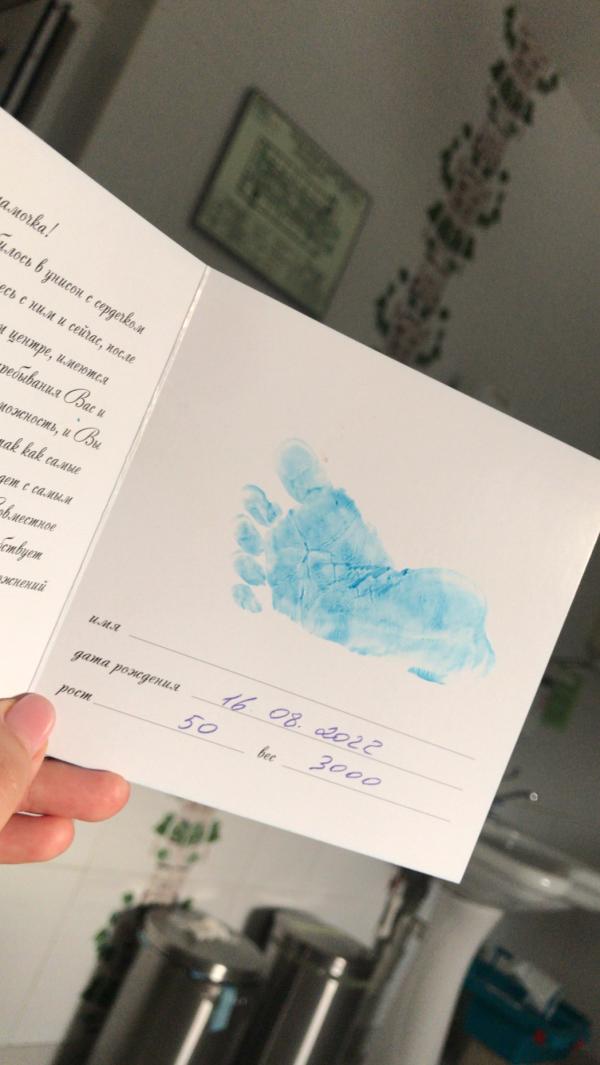 мамочка!
билось в унисон с сердечком
есь с ним и сейчас, после
м центре, имеются
ребывания Вас и
можность, и Вы
так как самые
дет с самым
овместное
бствует
ожнений
имя
дата рождения 16.08.2022
рост 50 вес 3000